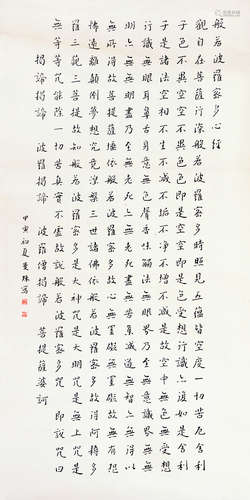 般若波羅蜜多心經
觀自在菩薩行深般若波羅蜜多時照見五蘊皆空度一切苦厄舍利
子色不異空空不異色色即是空空即是色受想行識亦復如是舍利
子是諸法空相不生不滅不垢不淨不增不減是故空中無色無受想
行識無眼耳鼻舌身意無色聲香味觸法無眼界乃至無意識界無無
明亦無無明盡乃至無老死亦無老死盡無苦集滅道無智亦無得以
無所得故菩提薩埵依般若波羅蜜多故心無罣礙無罣礙故無有恐
怖遠離顛倒夢想究竟涅槃三世諸佛依般若波羅蜜多故得阿耨多
羅三藐三菩提故知般若波羅蜜多是大神咒是大明咒是無上咒是
無等等咒能除一切苦真實不虛故說般若波羅蜜多咒即說咒曰
揭諦揭諦 波羅揭諦 波羅僧揭諦 菩提薩婆訶
甲寅初夏